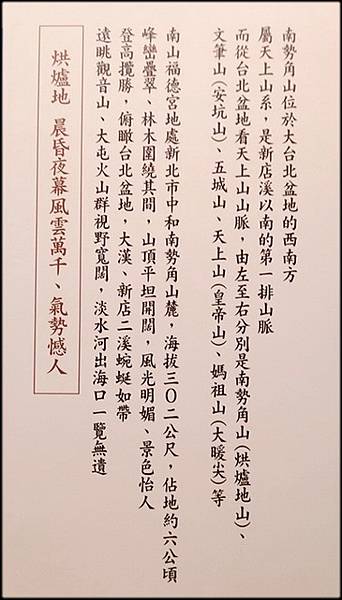 南勢角山位於大台北盆地的西南方
屬天上山系，是新店溪以南的第一排山脈
而從台北盆地看天上山山脈，由左至右分別是南勢角山(烘爐地山)、
文筆山(安坑山)、五城山、天上山(皇帝山)、媽祖山(大暖尖)等
南山福德宮地處新北市中和南勢角山麓，海拔三〇二公尺，佔地約六公頃
峰巒疊翠、林木圍繞其間，山頂平坦開闊，風光明媚、景色怡人
登高攬勝，俯瞰台北盆地，大漢、新店二溪蜿蜒如帶
遠眺觀音山、大屯火山群視野寬闊，淡水河出海口一覽無遺
烘爐地 晨昏夜幕風雲萬千、氣勢憾人